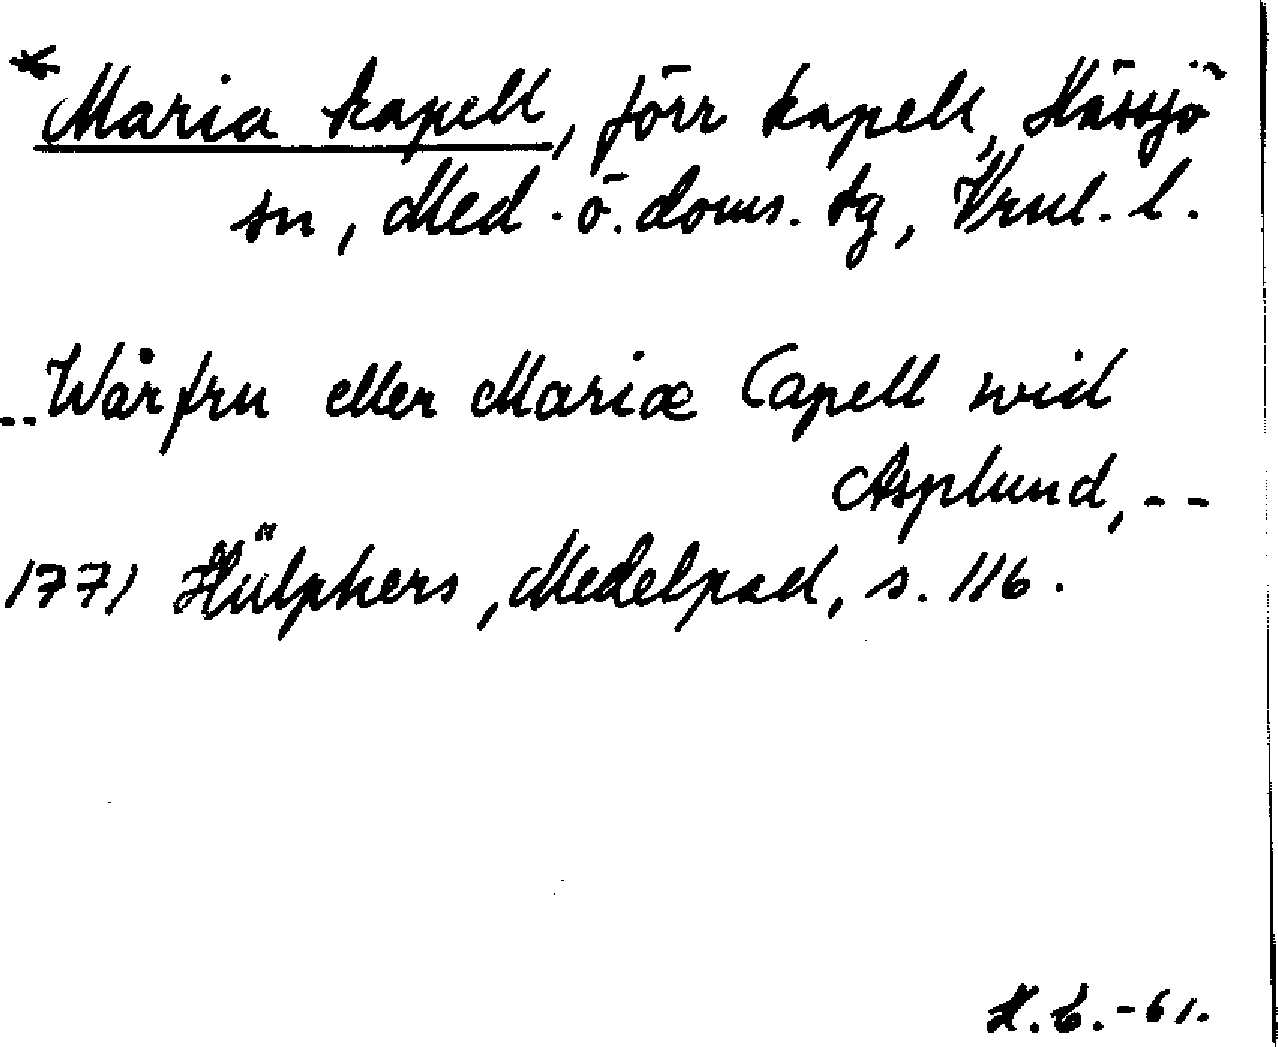 * Maria kapell, förr kapell, Hässjö
sn, Med. ö. doms. tg, Vrnl. l.
-- Wårfru eller Mariæ Capell wid
Asplund, --
1771 Hülphers, Medelpad, s. 116.
H. C. -61.